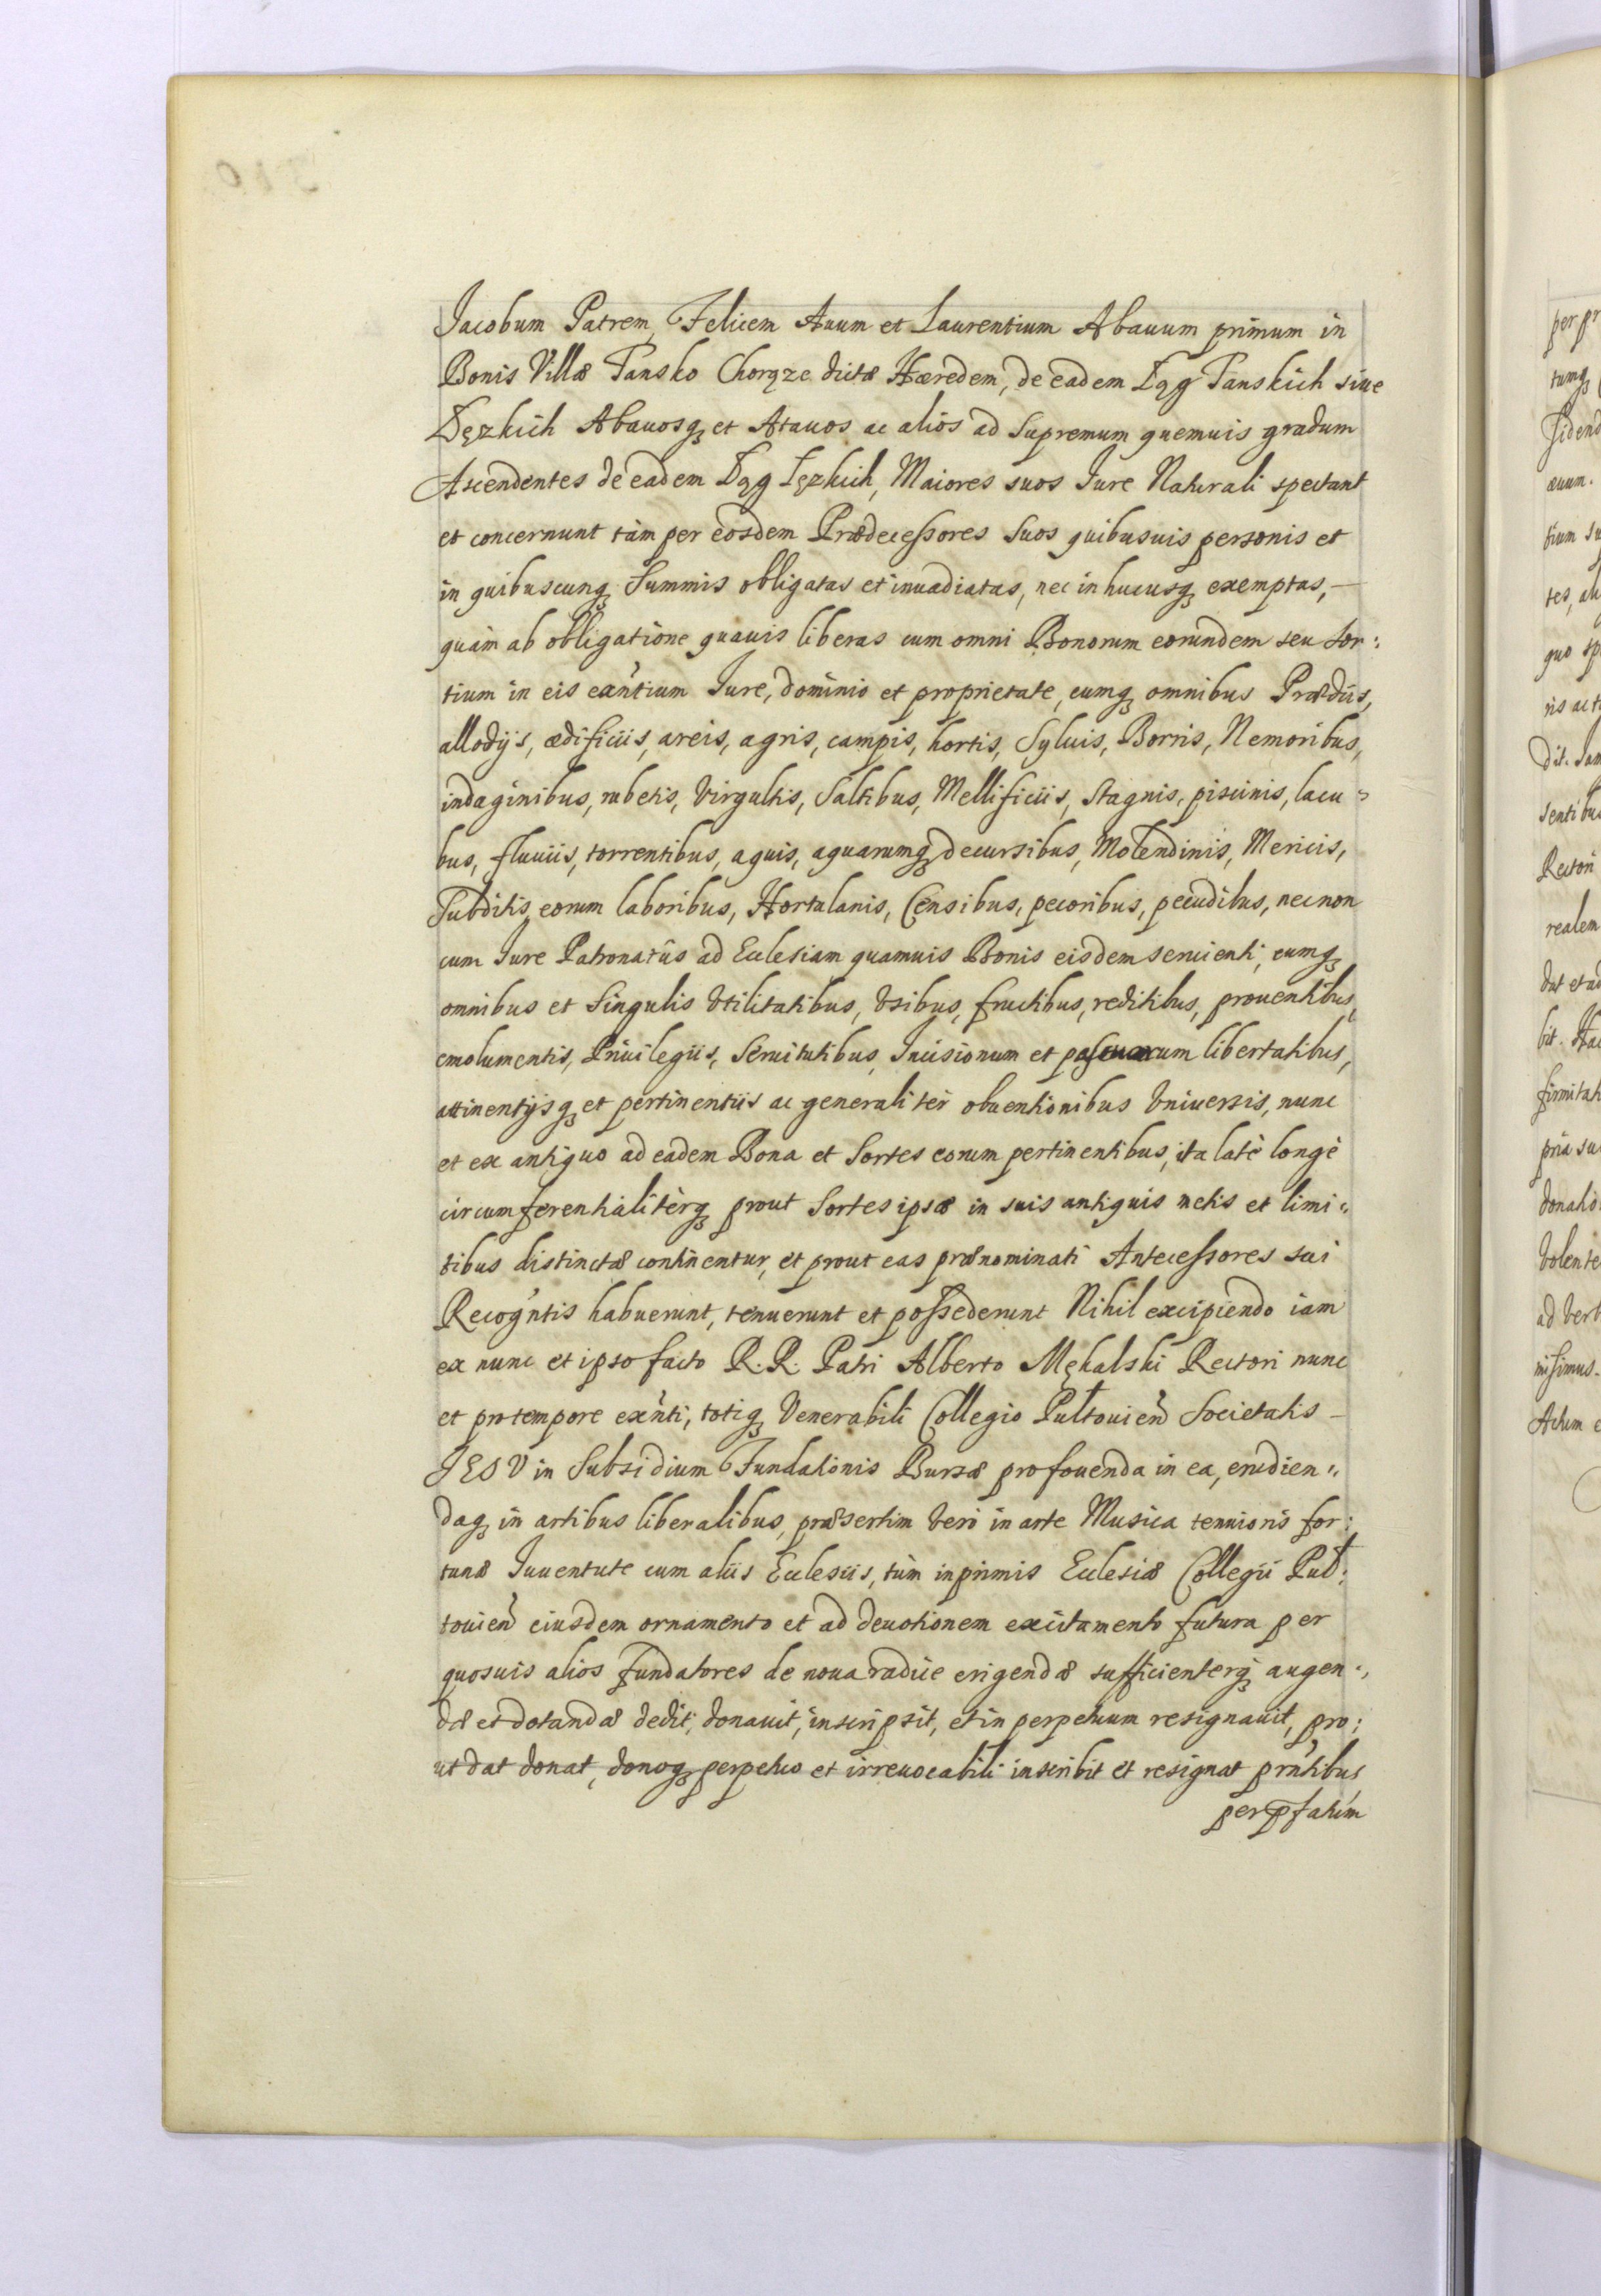 Jacobum Patrem, Felicem Auum et Laurentium Abauum primum in
Bonis Villæ Tansko Chorąze dictæ Hæredem, de eadem Łąg Tanskich siue
Łęzkich Abauosq, et Atauos ac alios ad Supremum quemuis gradum
Ascendentes de eadem Łąg Łęzkich, Maiores suos Iure Naturali spectant
et concernunt tàm per eosdem Prædecessores Suos quibusuis personis et
in quibuscunq, Summis obligatas et inuadiatas, nec in hucusq, exemptas, —
quàm ab obligatione quauis liberas cum omni Bonorum eorundem seu Sor:
tium in eis exntium Iure, dominio et proprietate, cumq, omnibus Prædiis,
allodijs, ædificiis, areis, agris, campis, hortis, Syluis, Borris, Nemoribus,
indaginibus, rubetis, Virgultis, Saltibus, Mellificiis, Stagnis, piscinis, lacu=
bus, fluuiis, torrentibus, aquis, aquarumq, decursibus, Molendinis, Mericis,
Subditis, eorum laboribus, Hortulanis, Censibus, pecoribus, pecudibus, necnon
cum Iure Patronatûs ad Ecclesiam quamuis Bonis eisdem seruienti, cumq,
omnibus et Singulis Vtilitatibus, Vsibus, fructibus, reditibus, prouentibus,
emolumentis, Priuilegiis, Seruitutibus, Incisionum et pascuarum libertatibus,
attinentijsq, et pertinentiis ac generaliter obuentionibus Vniuersis, nunc
et ex antiquo ad eadem Bona et Sortes eorum pertinentibus, ita latè longè
circumferentialitèrq, prout Sortes ipsæ in suis antiquis metis et limi=
tibus distinctæ continentur, et prout eas prænominati Antecessores sui
Recogntis habuerunt, tenuerunt et possederunt Nihil excipiendo iam
ex nunc et ipso facto R. R. Patri Alberto Męhalski Rectori nunc
et pro tempore exnti, totiq, Venerabili Collegio Pułtouien Societatis —
IESV in Subsidium Fundationis Bursæ pro fouenda in ea, erudien=
daq, in artibus liberalibus, præsertim verò in arte Musica tenuioris for:
tunæ Iuuentute cum aliis Ecclesiis, tùm inprimis Ecclesiæ Collegii Puł:
touien eiusdem ornamento et ad deuotionem excitamento futura per
quosuis alios fundatores de noua radice erigendæ sufficienterq, augen=
dæ et dotandæ dedit, donauit, inscripsit, et in perpetuum resignauit, pro:
ut dat donat, donoq, perpetuo et irreuocabili inscribit et resignat pntibus